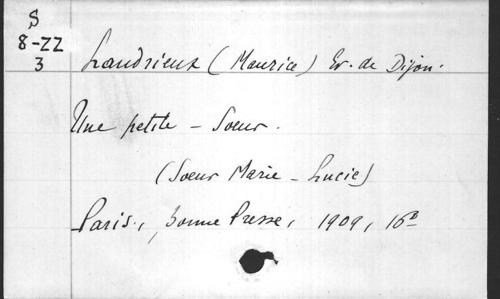 S
8-ZZ
3
Landrieux (Maurice) Ev. de Dijon.
Une petite - Soeur.
(Soeur Marie - Lucie)
Paris., Bonne Presse, 1909, 16°